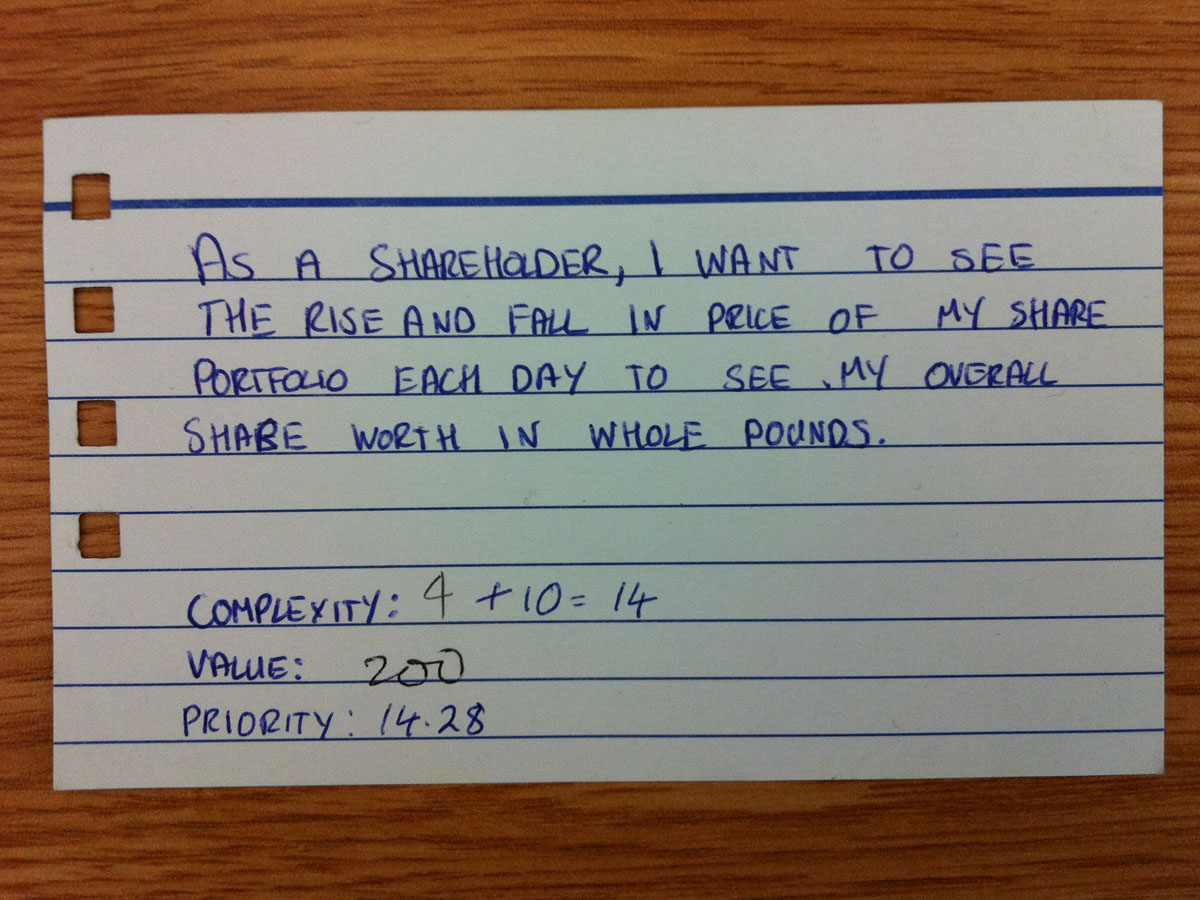 AS A SHAREHOLDER, I WANT TO SEE
THE RISE AND FALL IN PRICE OF MY SHARE
PORTFOLIO EACH DAY TO SEE MY OVERALL
SHARE WORTH IN WHOLE POUNDS.
COMPLEXITY: 4 + 10 = 14
VALUE: 200
PRIORITY: 14.28